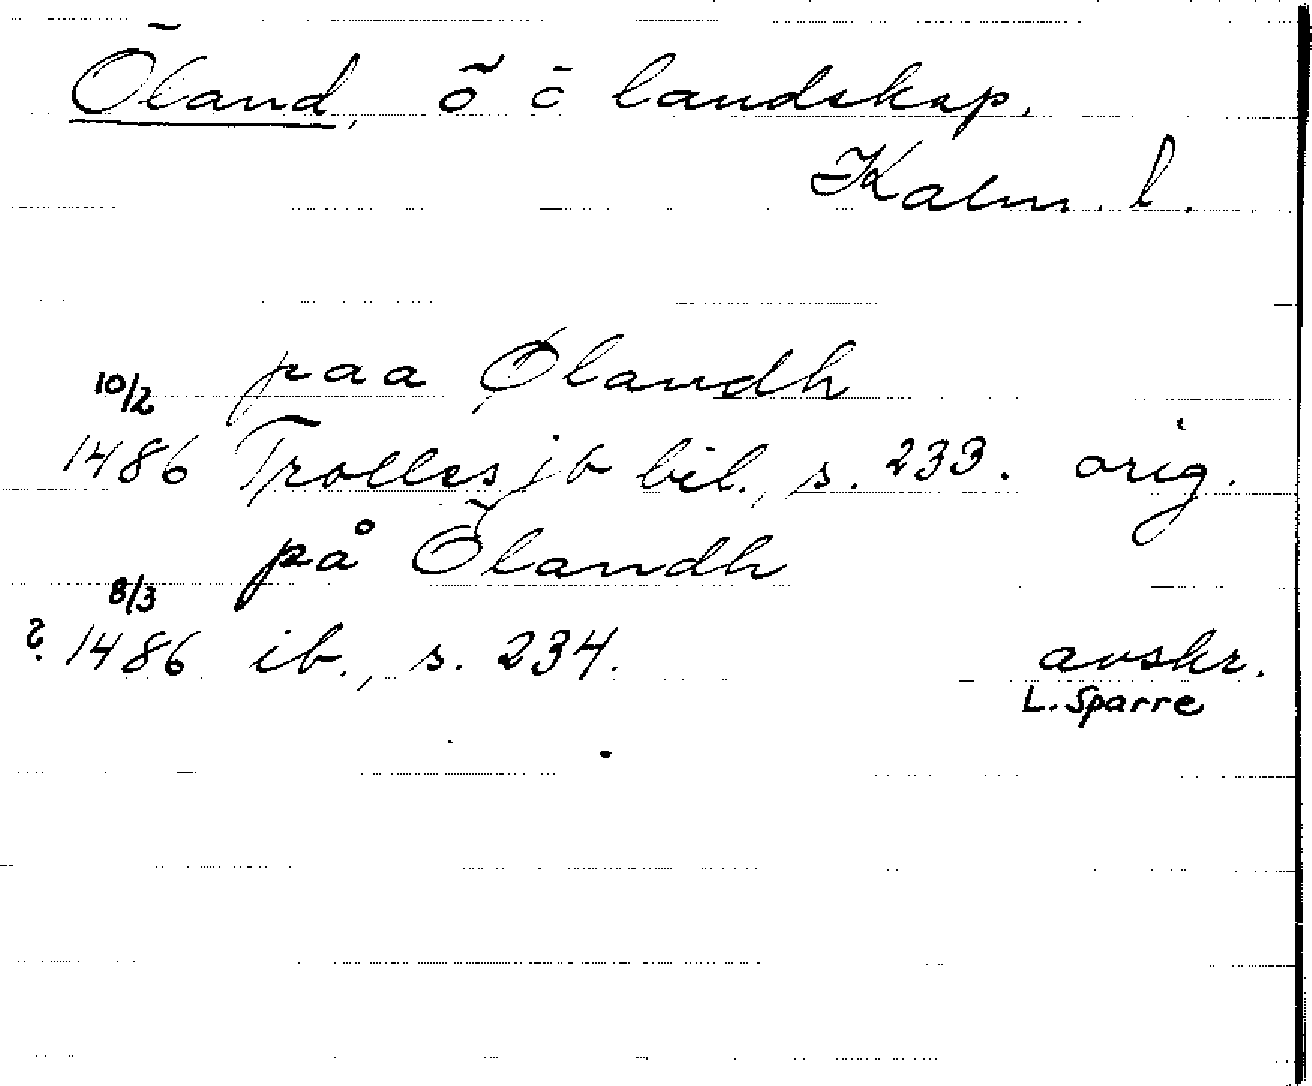 Öland, ö o landskap.
Kalm. l.
paa Ølandh
10/2
1486 Trolles jb bil., s. 233. orig.
på Ölandh
8/3
? 1486 ib., s. 234. avskr.
L. Sparre